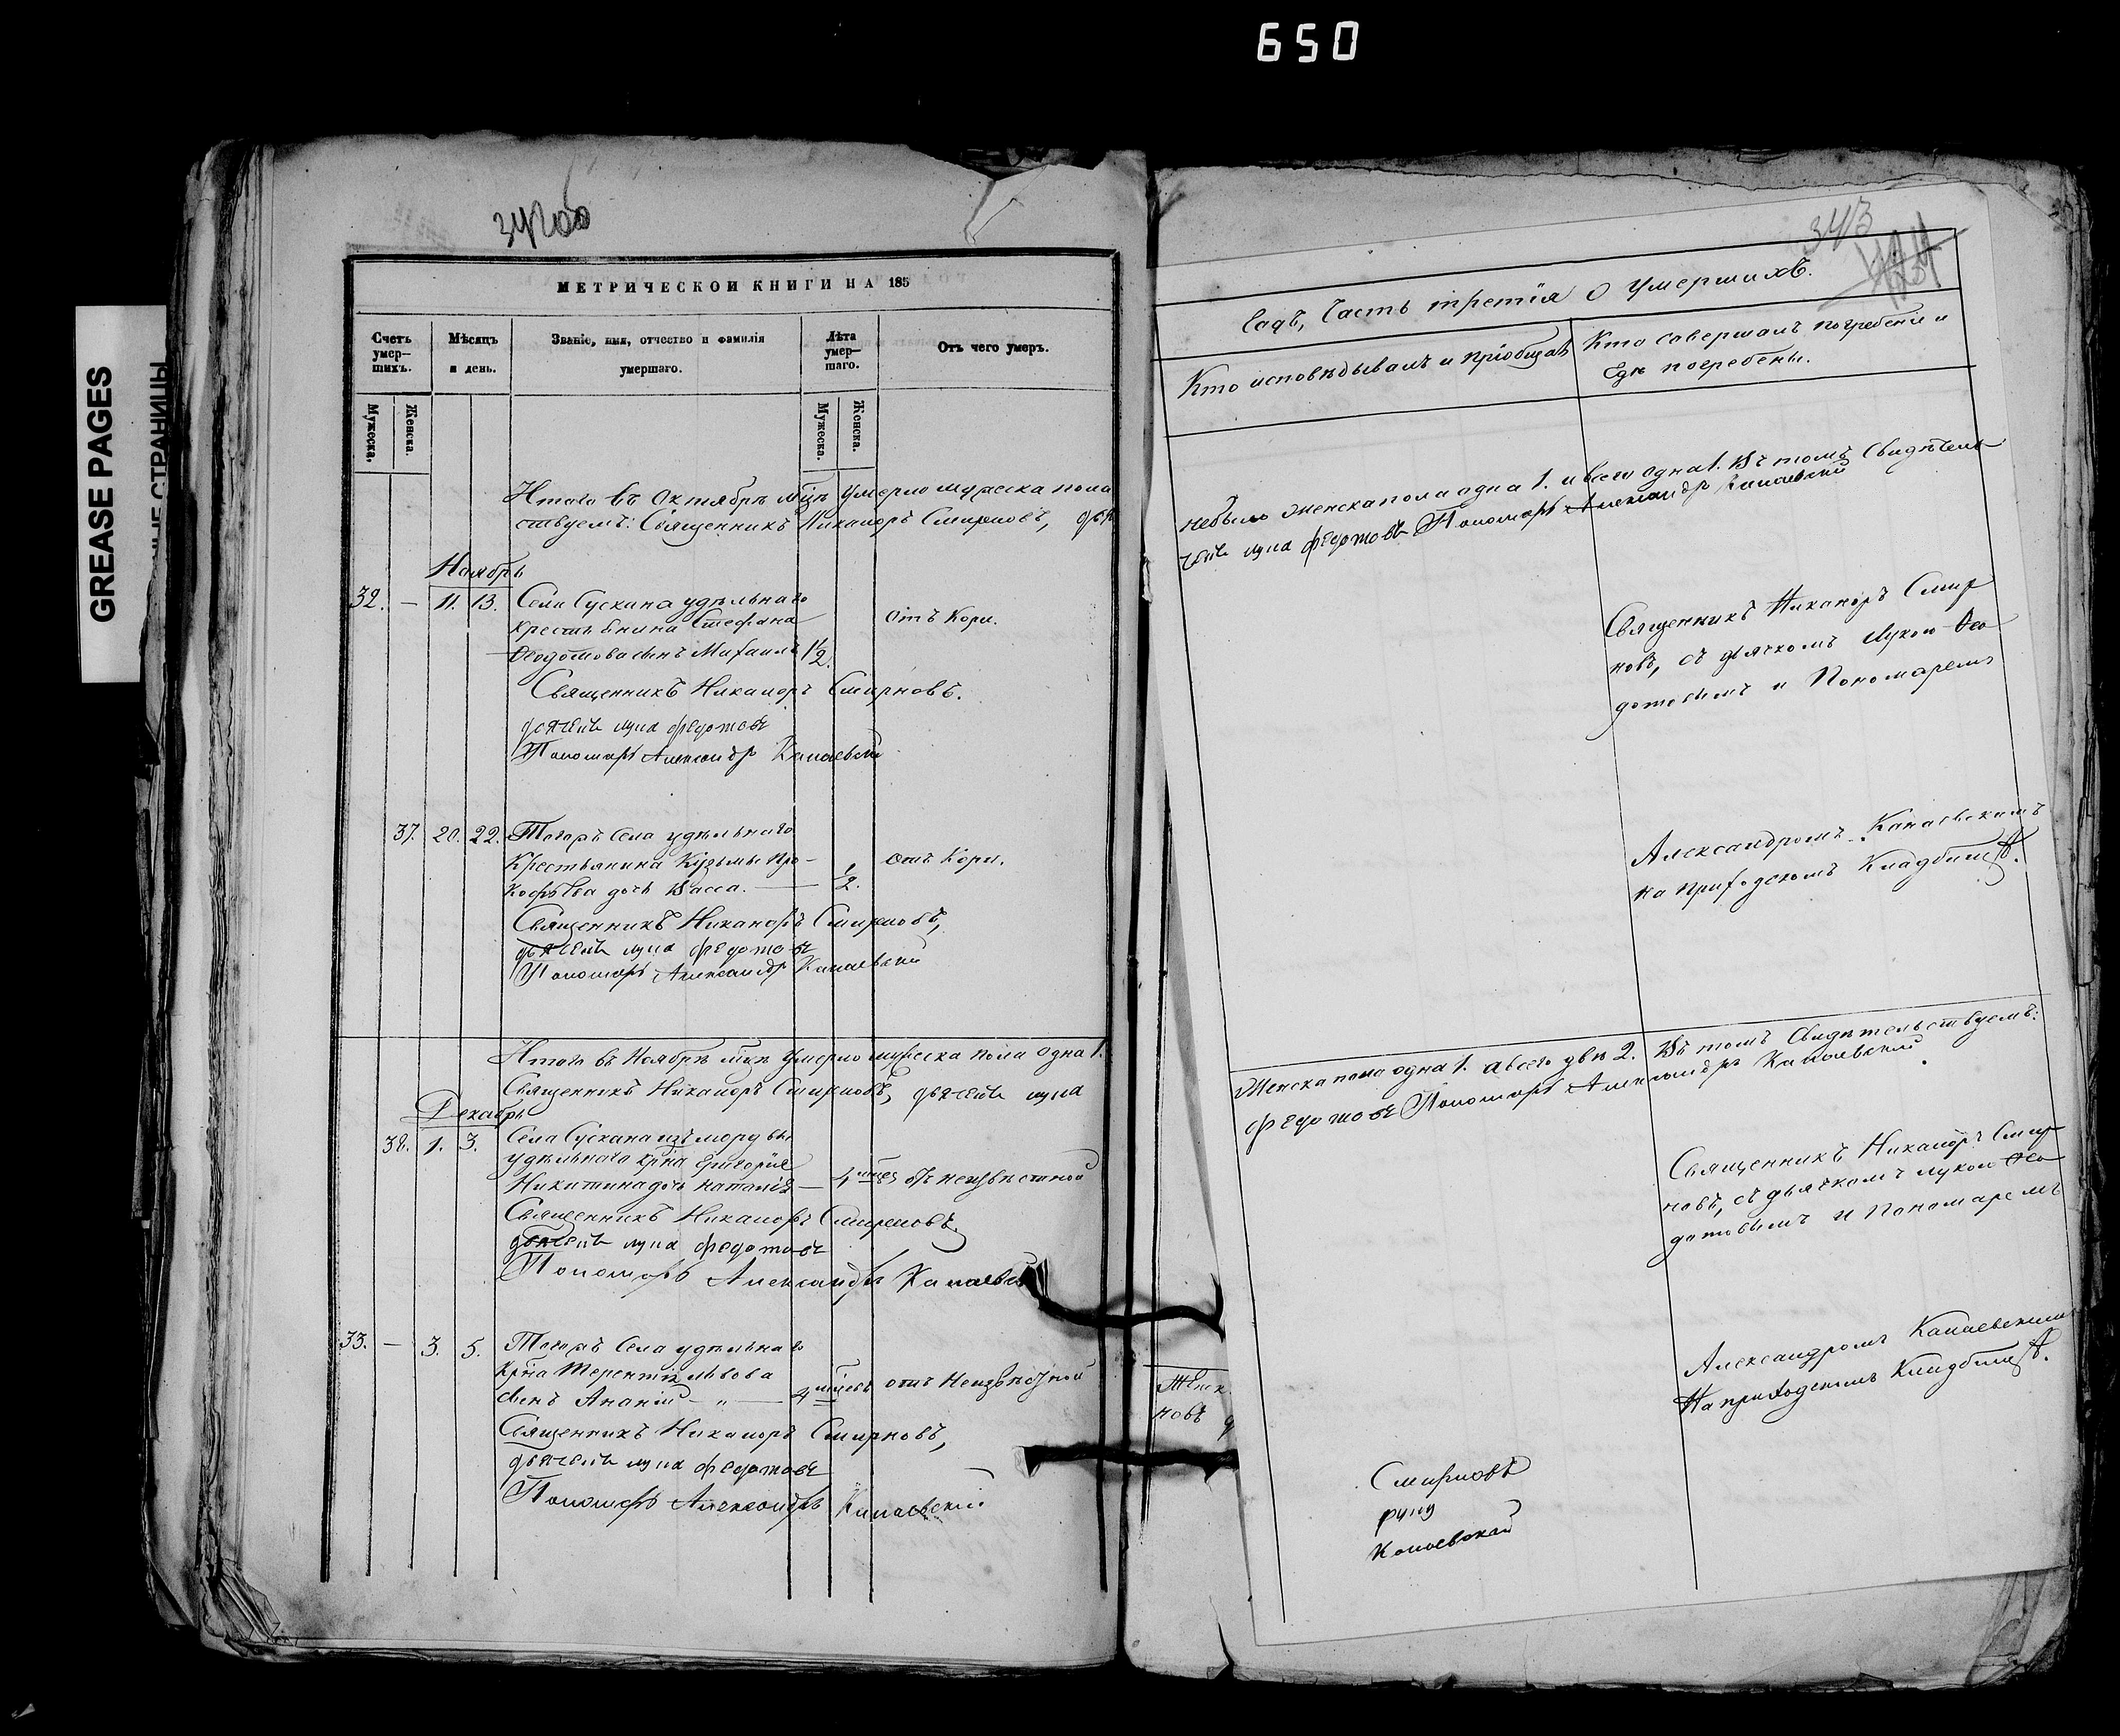 650
GREASE PAGES
342об
МЕТРИЧЕСКОЙ КНИГИ НА 185
Счетъ умер-шихъ.
Мѣсяцъ и день.
Званіе, имя, отчество и фамилія умершаго.
Лѣта умер-шаго.
Отъ чего умеръ.
Мужеска.
Женска.
Мужеска.
Женска.
Итого въ Октябрѣ мцѣ умерло мужеска пола
ствуемъ: Священникъ Никаноръ Смирновъ, дья
Ноябрь
32. — 11. 13. Села Сускана удѣльнаго
крестьянина Стефана отъ Кори.
Ѳеодотова сынъ Михаилъ 1½.
Священникъ Никаноръ Смирновъ.
дьячекъ лука федотовъ
Пономарь Александръ Канаевскій
37. 20. 22. Тогожъ села удѣльнаго
Крестьянина Кузьмы Про- отъ Кори.
кофьева дочь Васса. — ½.
Священникъ Никаноръ Смирновъ,
дьячекъ лука федотовъ
Пономарь Александръ Канаевскій
Итого въ Ноябрѣ мцѣ умерло мужеска пола одна 1.
Священникъ Никаноръ Смирновъ, дьячекъ лука
Декабрь
38. 1. 3. Села Сускана изъ мордвы
удѣльнаго крна Григорія
Никитина дочь Наталія — 4 мцев отъ неизвѣстной
Священникъ Никаноръ Смирновъ.
дьячекъ лука федотовъ
Пономарь Александръ Канаевскій
33. — 3. 5. Тогожъ села удѣльнаго
крна Терентія Львова
сынъ Ананій — „ — 4 мцевъ отъ Неизвѣстной
Священникъ Никаноръ Смирновъ,
дьячекъ лука федотовъ
Пономарь Александръ Канаевскій
343
годъ, Часть третія о умершихъ.
Кто исповѣдывалъ и пріобщалъ
Кто совершалъ погребеніе и
гдѣ погребены.
небыло женска пола одна 1. и всего одна 1. Въ томъ Свидѣтель
чекъ лука федотовъ Пономарь Александръ Канаевскій
Священникъ Никаноръ Смир
новъ, съ дьячкомъ Лукою Ѳео
дотовымъ и Пономаремъ
Александромъ Канаевскимъ
на приходскомъ Кладбищѣ.
Женска пола одна 1. а всего двѣ 2. Въ томъ Свидѣтельствуемъ:
федотовъ Пономарь Александръ Канаевскій
Священникъ Никаноръ Смир
новъ, съ дьячкомъ лукою Ѳео
дотовымъ и Пономаремъ
Александромъ Канаевскимъ
На приходскомъ Кладбищѣ.
Женск
новъ д
Смирновъ
руку
Канаевской